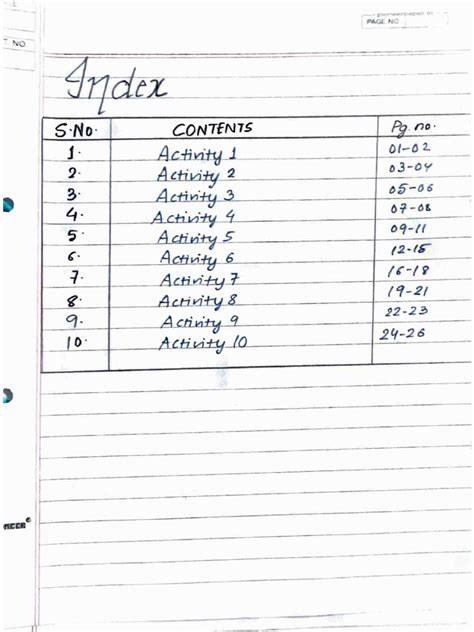 PAGE NO
T. NO
Index
S.No. CONTENTS Pg. no.
1. Activity 1 01-02
2. Activity 2 03-04
3. Activity 3 05-06
4. Activity 4 07-08
5. Activity 5 09-11
6. Activity 6 12-15
7. Activity 7 16-18
8. Activity 8 19-21
9. Activity 9 22-23
10. Activity 10 24-26